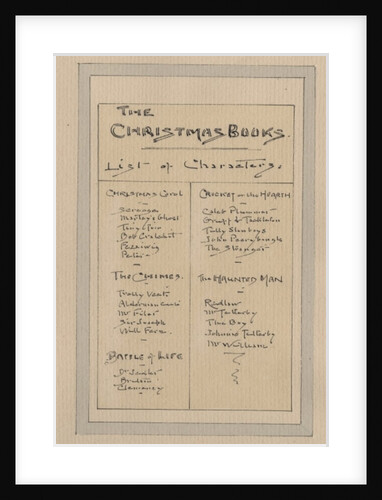 THE
CHRISTMAS BOOKS.
List of Characters.
CHRISTMAS Carol
Scrooge
Marley's Ghost
Tiny Tim
Bob Cratchit
Fezziwig
THE CHIMES.
Trotty Veck
Alderman Cute
Mr Filer
Sir Joseph
Will Fern
BATTLE of LIFE
Dr Jeddler
Britain
Clemency
CRICKET on the HEARTH
Caleb Plummer
Gruff & Tackleton
Tilly Slowboy
John Peerybingle
The Stranger
The HAUNTED MAN
Redlaw
Mr Tetterby
The Boy
Johnnie Tetterby
Mr William